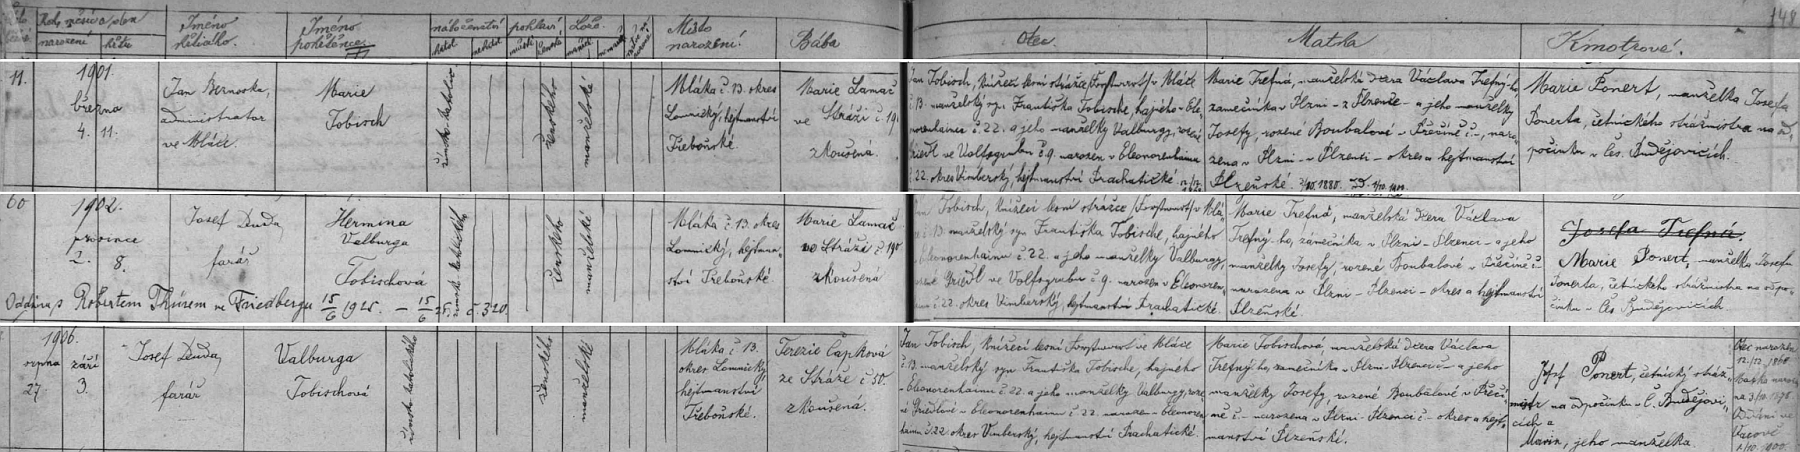 148
Rok, měsíc a den
narození
křtu
Jméno
křtícího.
Jméno
pokřtěnce
náboženství
pohlaví
Lože
Místo
narození.
Bába
Otec
Matka
Kmotrové.
11.
1901.
března
4. 11.
administrator
ve Mláce.
Marie
Tobisch
římsko-katolické
ženského
manželské
Mláka č. 13. okres
Lomnický, hejtmanství
Třeboňské
Marie Lamač
ve Stráži č. 19
zkoušená.
Jan Tobisch, knížecí lesní strážce (Forstwart) v Mláce
č. 13. manželský syn Františka Tobische, hajného v Ele-
onorenhainu č. 22. a jeho manželky Valburgy, rozené
Friedl ve Volfsgrubu č. 9. narozen v Eleonorenhainu
č. 22. okres Vimberský, hejtmanství Prachatické
Marie Trefná, manželská dcera Václava Trefný-ho,
zámečníka v Plzni - a jeho manželky
Josefy, rozené Boubalové
Plzeňské.
Marie Ponert, manželka Josefa
Ponerta, četnického strážmistra na od-
počinku v Čes. Budějovicích.
60
1902.
prosince
2. 8.
Josef Duda
farář
Hermina
Valburga
Tobischová
římsko-katolické
ženského
manželské
Mláka č. 13. okres
Lomnický, hejtman-
ství Třeboňské
Marie Lamač
ve Stráži č. 190
zkoušená
Oddána s Robertem ve Friedbergu 15/6 1925. — 15/6 25. č. 320.
Jan Tobisch, knížecí lesní strážce (Forstwart) v Mlá-
č. 13. manželský syn Františka Tobische, hajného
v Eleonorenhainu č. 22. a jeho manželky Valburgy,
rozené Friedl ve Volfsgrubu č. 9. narozen v Eleonoren-
hainu č. 22. okres Vimberský, hejtmanství Prachatické.
Marie Trefná, manželská dcera Václava
Trefný-ho, zámečníka v Plzni - a jeho
manželky Josefy, rozené Boubalové
narozena v Plzni - okres a hejtmanství
Plzeňské.
Josefa Trefná.
Marie Ponert, manželka Josefa
Ponerta, četnického strážmistra na odpo-
činku v Čes. Budějovicích.
1906.
srpna září
27. 3.
Josef Duda
farář
Valburga
Tobischová
římsko-katolického
ženského
manželské
Mláka č. 13.
okres Lomnický,
hejtmanství
Třeboňské.
Terezie Čapková
ze Stráže č. 50.
zkoušená.
Jan Tobisch, knížecí lesní Forstwart ve Mláce
č. 13. manželský syn Františka Tobische, hajného
v Eleonorenhainu č. 22. a jeho manželky Valburgy, roze-
né Friedlové v Eleonorenhainu č. 22. narozen v Eleonoren-
hainu č. 22. okres Vimberský, hejtmanství Prachatické.
Marie Tobischová, manželská dcera Václava
Trefný-ho, zámečníka v Plzni - a jeho
manželky Josefy, rozené Boubalové
narozena v Plzni okres a hejt-
manství Plzeňské.
Josef Ponert, četnický stráž-
mistr na odpočinku v Č. Budějovi-
cích a
Marie, jeho manželka
Otec narozen
Matka naroze-
na
Oddáni ve